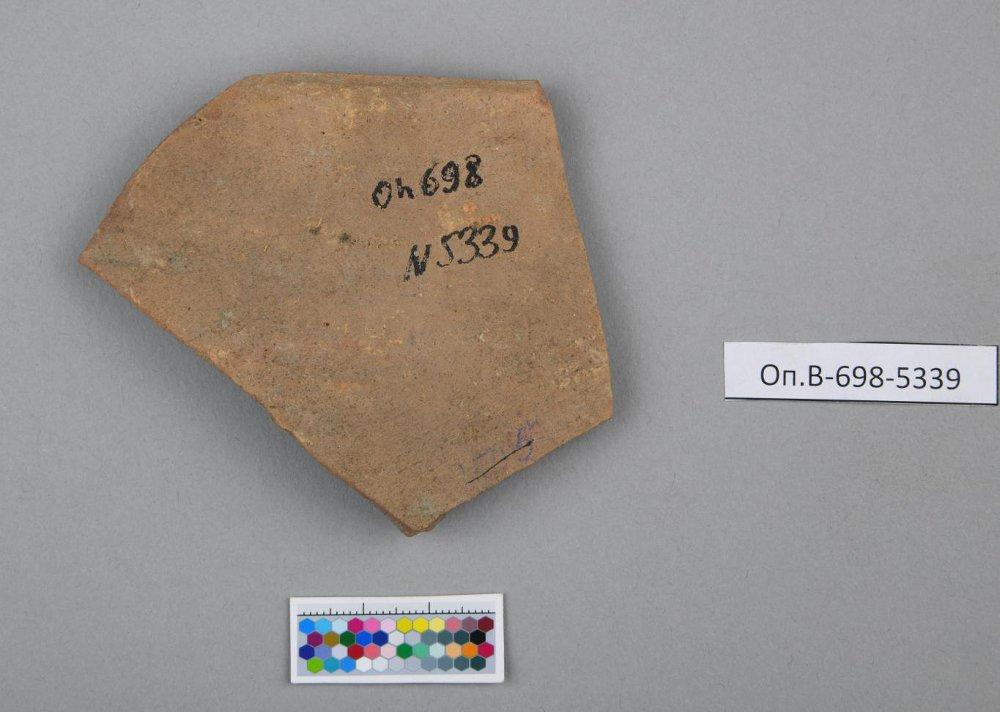 Оп 698
N 5339
Оп.В-698-5339